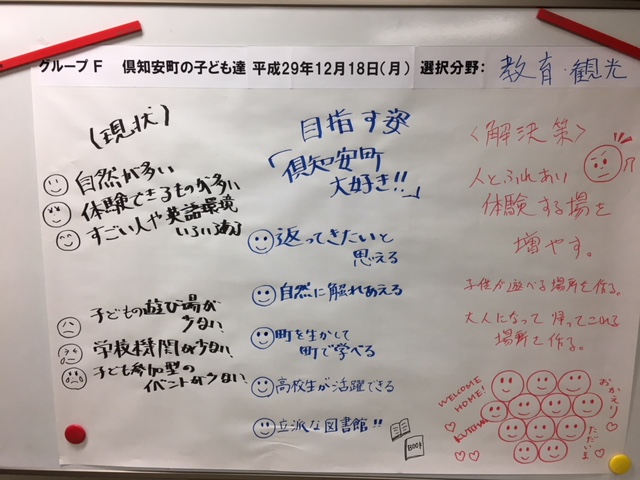 グループ F 倶知安町の子ども達 平成29年12月18日(月) 選択分野: 教育・観光
(現状)
自然が多い
体験できるものが多い
すごい人や英語環境
いろいろ
子どもの遊び場が
少ない
学校機関が少ない
子ども参加型の
イベントが少ない
目指す姿
「倶知安町
大好き!!」
返ってきたいと
思える
自然に触れあえる
町を生かして
町で学べる
高校生が活躍できる
立派な図書館!!
BOOK
〈解決策〉
人とふれあい
体験する場を
増やす。
子供が遊べる場所を作る。
大人になって帰ってこれる
場所を作る。
WELCOME
HOME!
おかえり
ただいま